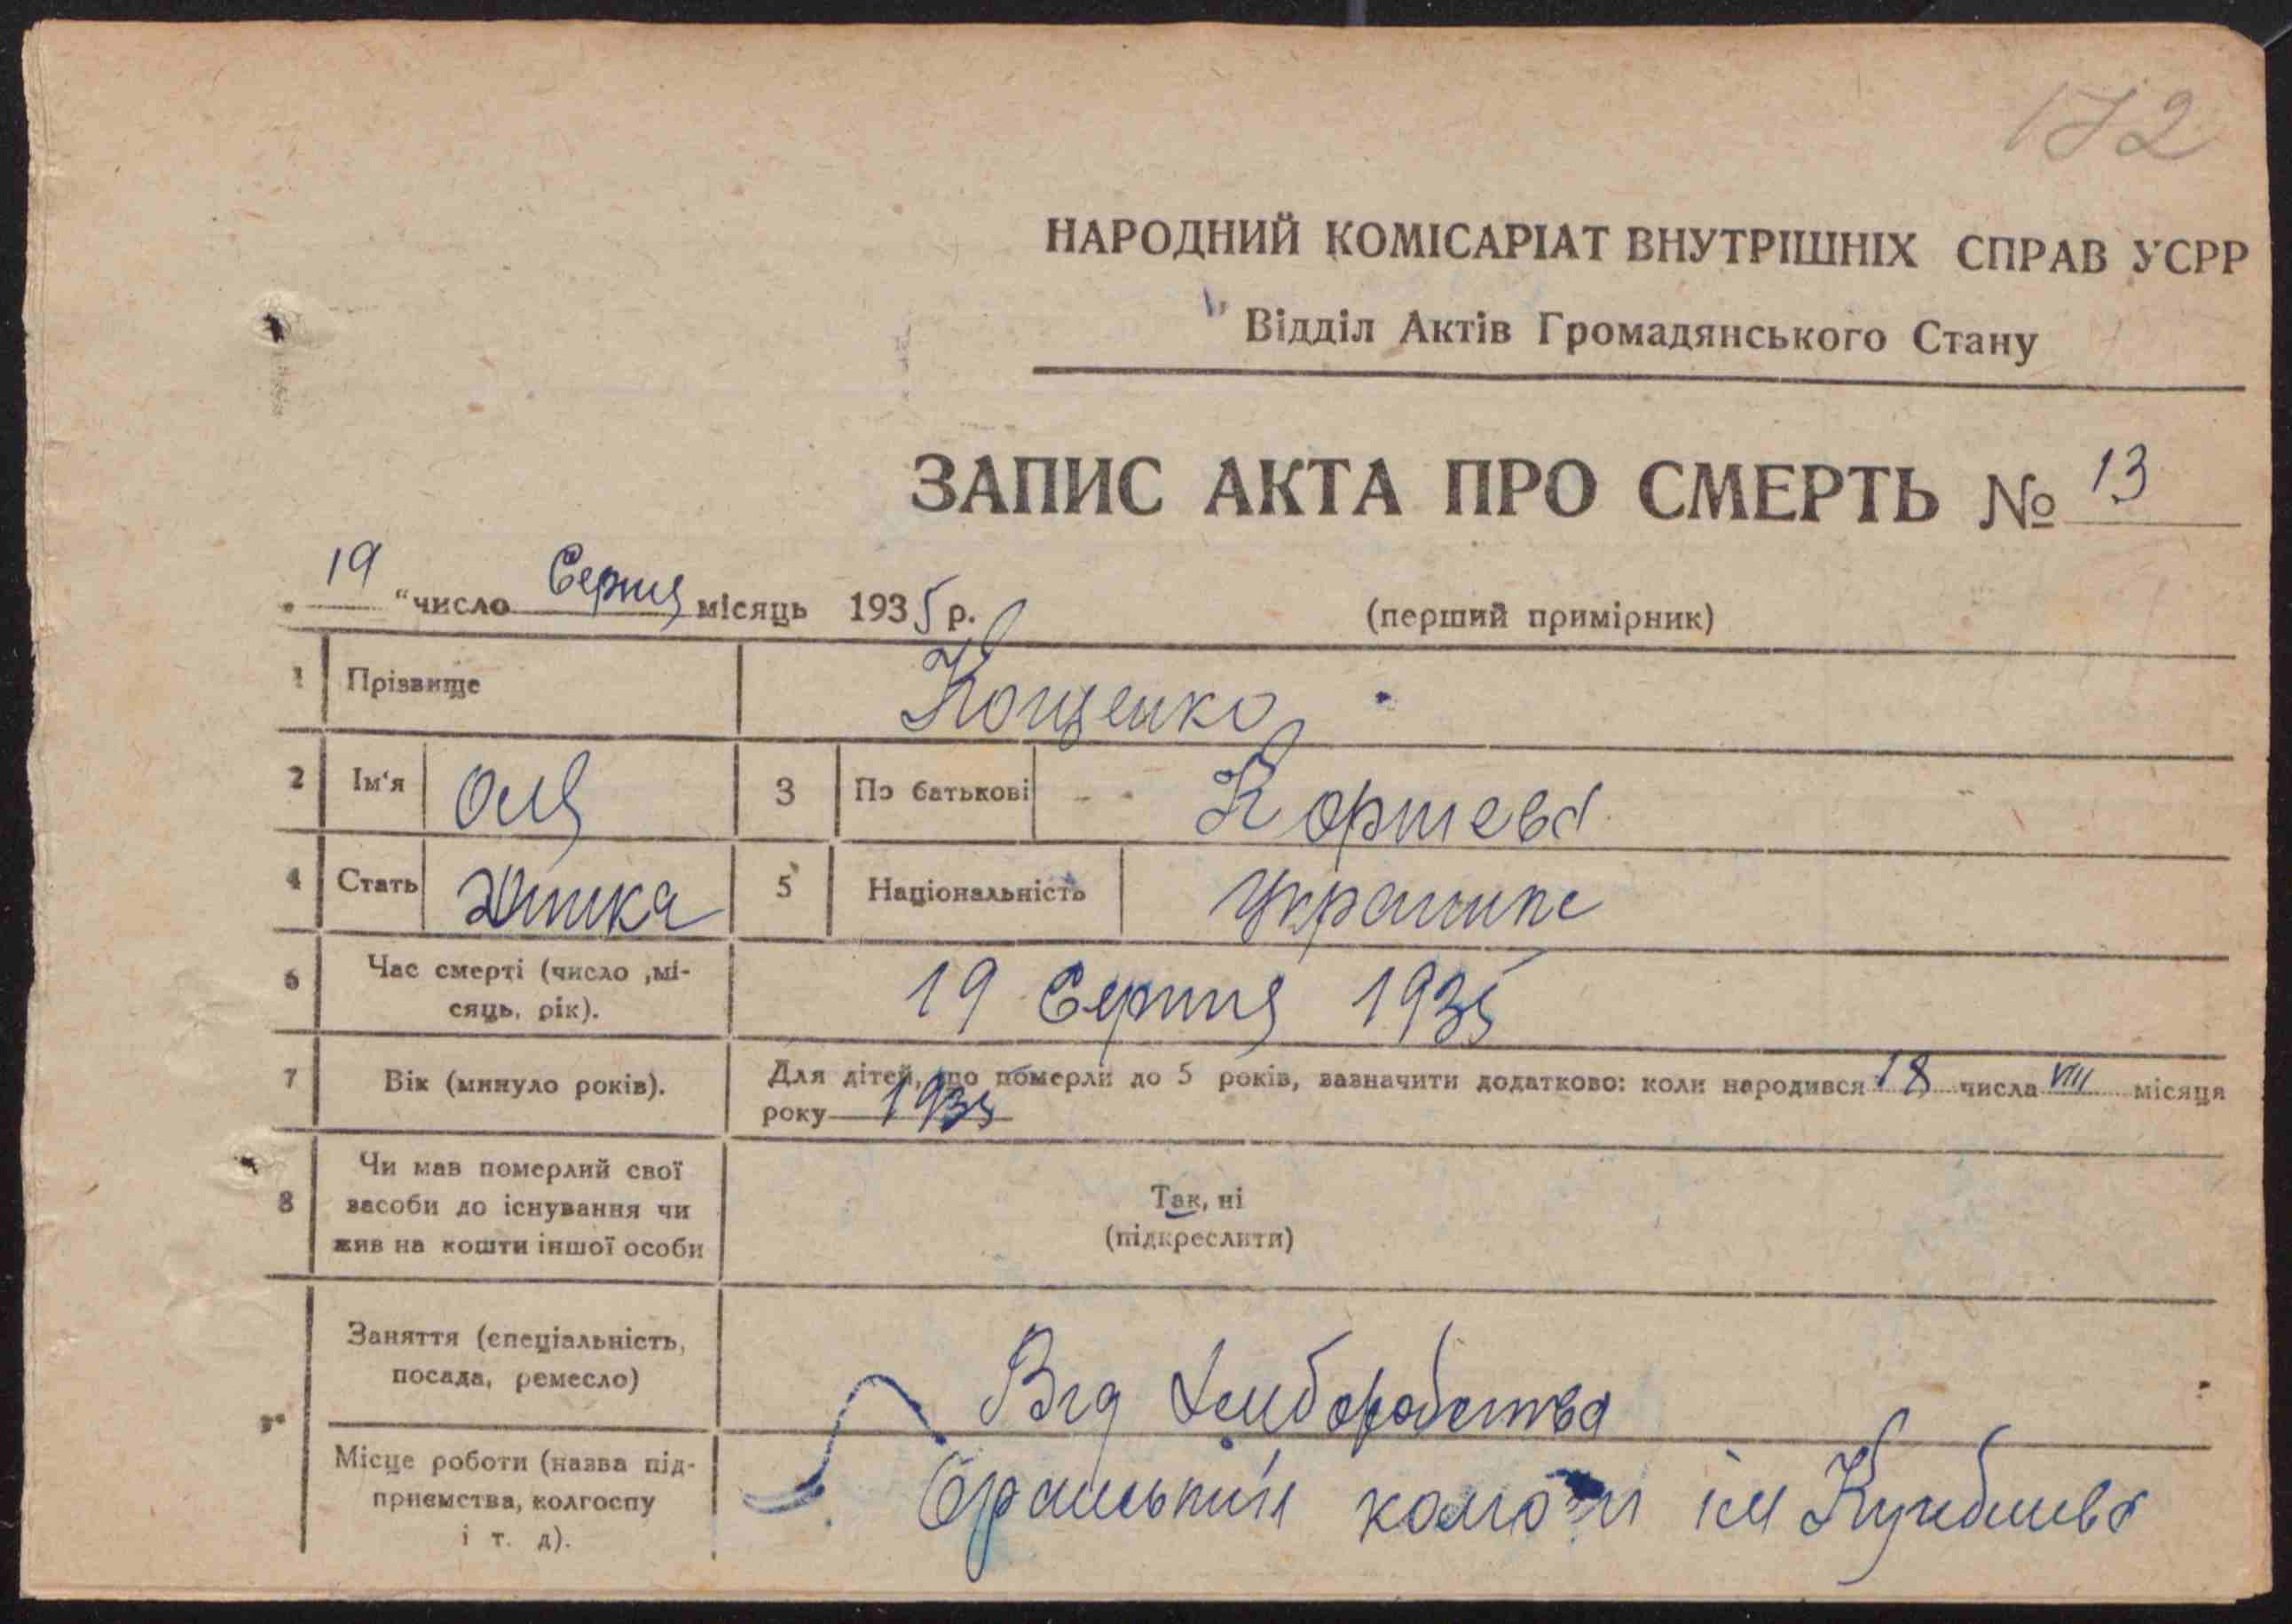 172
НАРОДНИЙ КОМІСАРІАТ ВНУТРІШНІХ СПРАВ УСРР
Відділ Актів Громадянського Стану
ЗАПИС АКТА ПРО СМЕРТЬ № 13
19 "число Серпня місяць 1935 р. (перший примірник)
1 Прізвище Кощенко
2 Ім'я Оля 3 По батькові
4 Стать жінка 5 Національність Українка
6 Час смерті (число ,мі-
сяць, рік). 19 Серпня 1935
7 Вік (минуло років). Для дітей, що померли до 5 років, зазначити додатково: коли народився 18 числа VIII місяця
року 1935
8 Чи мав померлий свої
засоби до існування чи
жив на кошти іншої особи
Так, ні
(підкреслити)
Заняття (спеціальність,
посада, ремесло) Від хліборобства
9
Місце роботи (назва під-
приємства, колгоспу
і т. д).
ім Куйбишева